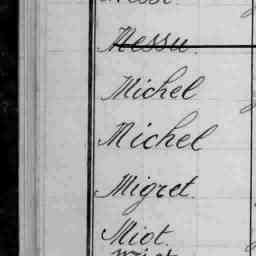 Messu.
Michel
Michel
Migret.
Miot.